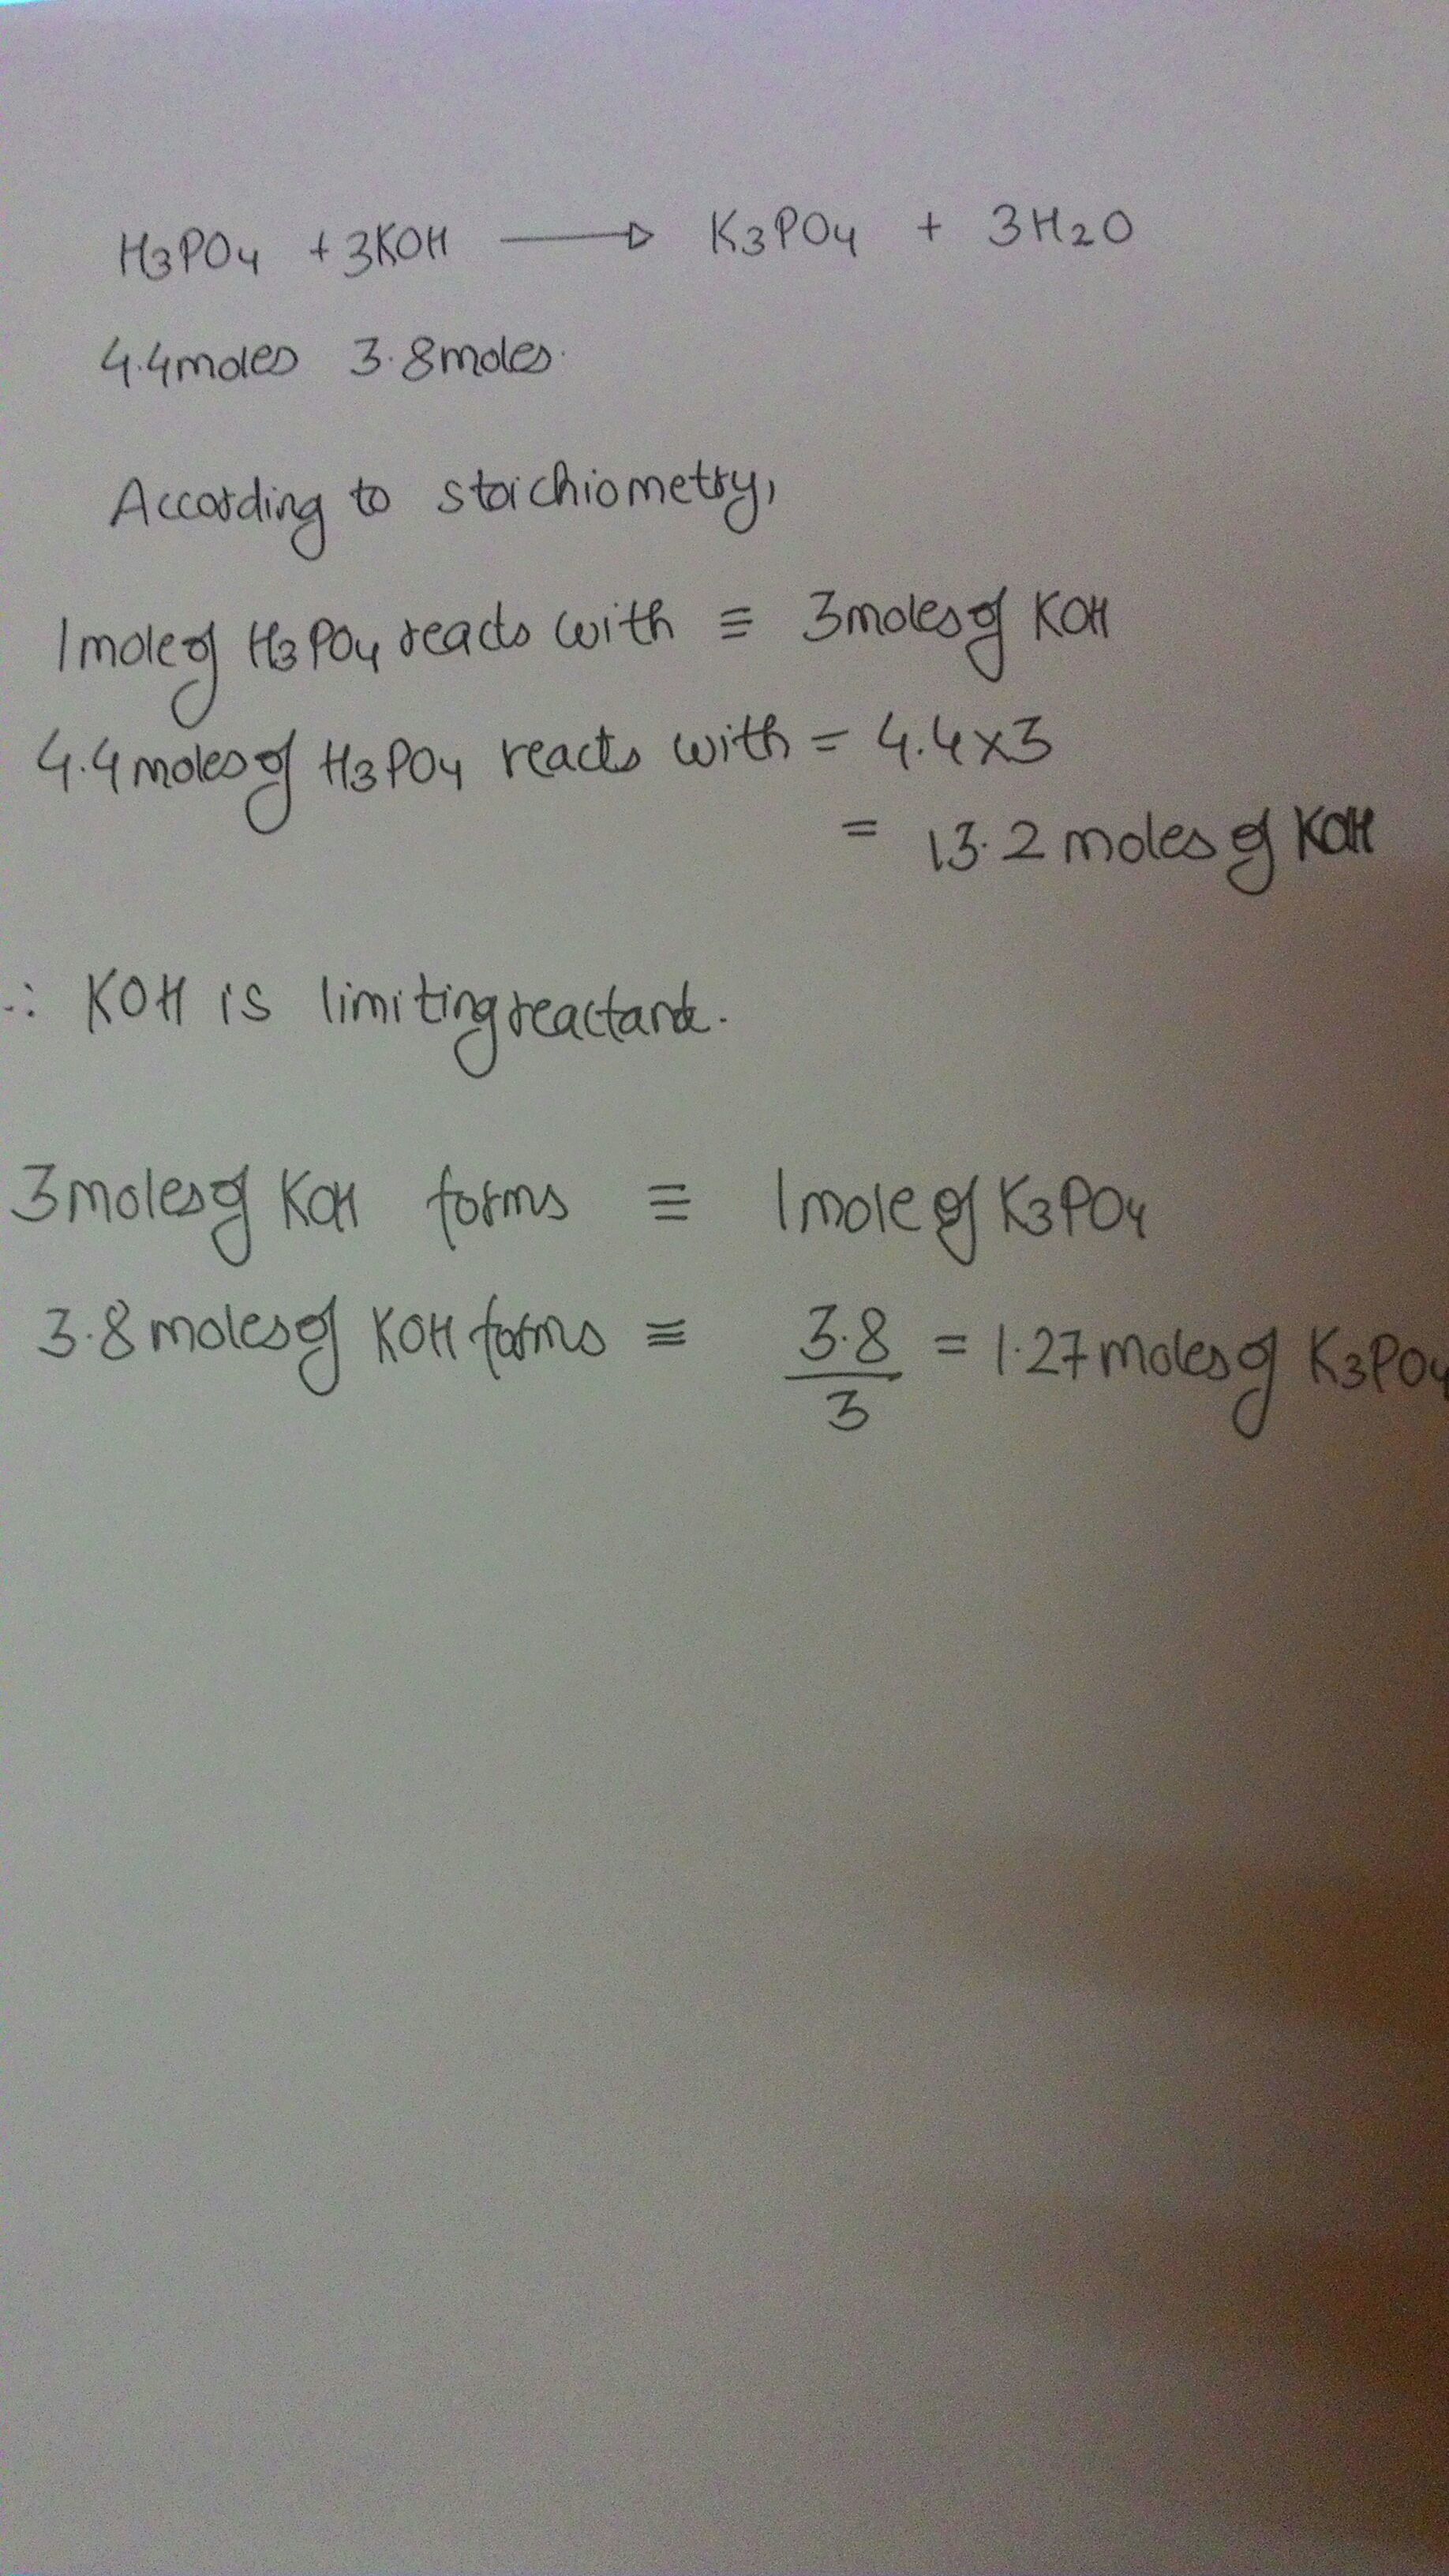 H3PO4 + 3KOH ⟶ K3PO4 + 3H2O
4.4moles 3.8moles.
According to stoichiometry,
1mole of H3PO4 reacts with ≡ 3moles of KOH
4.4moles of H3PO4 reacts with = 4.4×3
= 13.2 moles of KOH
∴ KOH is limiting reactant.
3moles of KOH forms ≡ 1mole of K3PO4
3.8 moles of KOH forms ≡ 3.8/3 = 1.27 moles of K3PO4